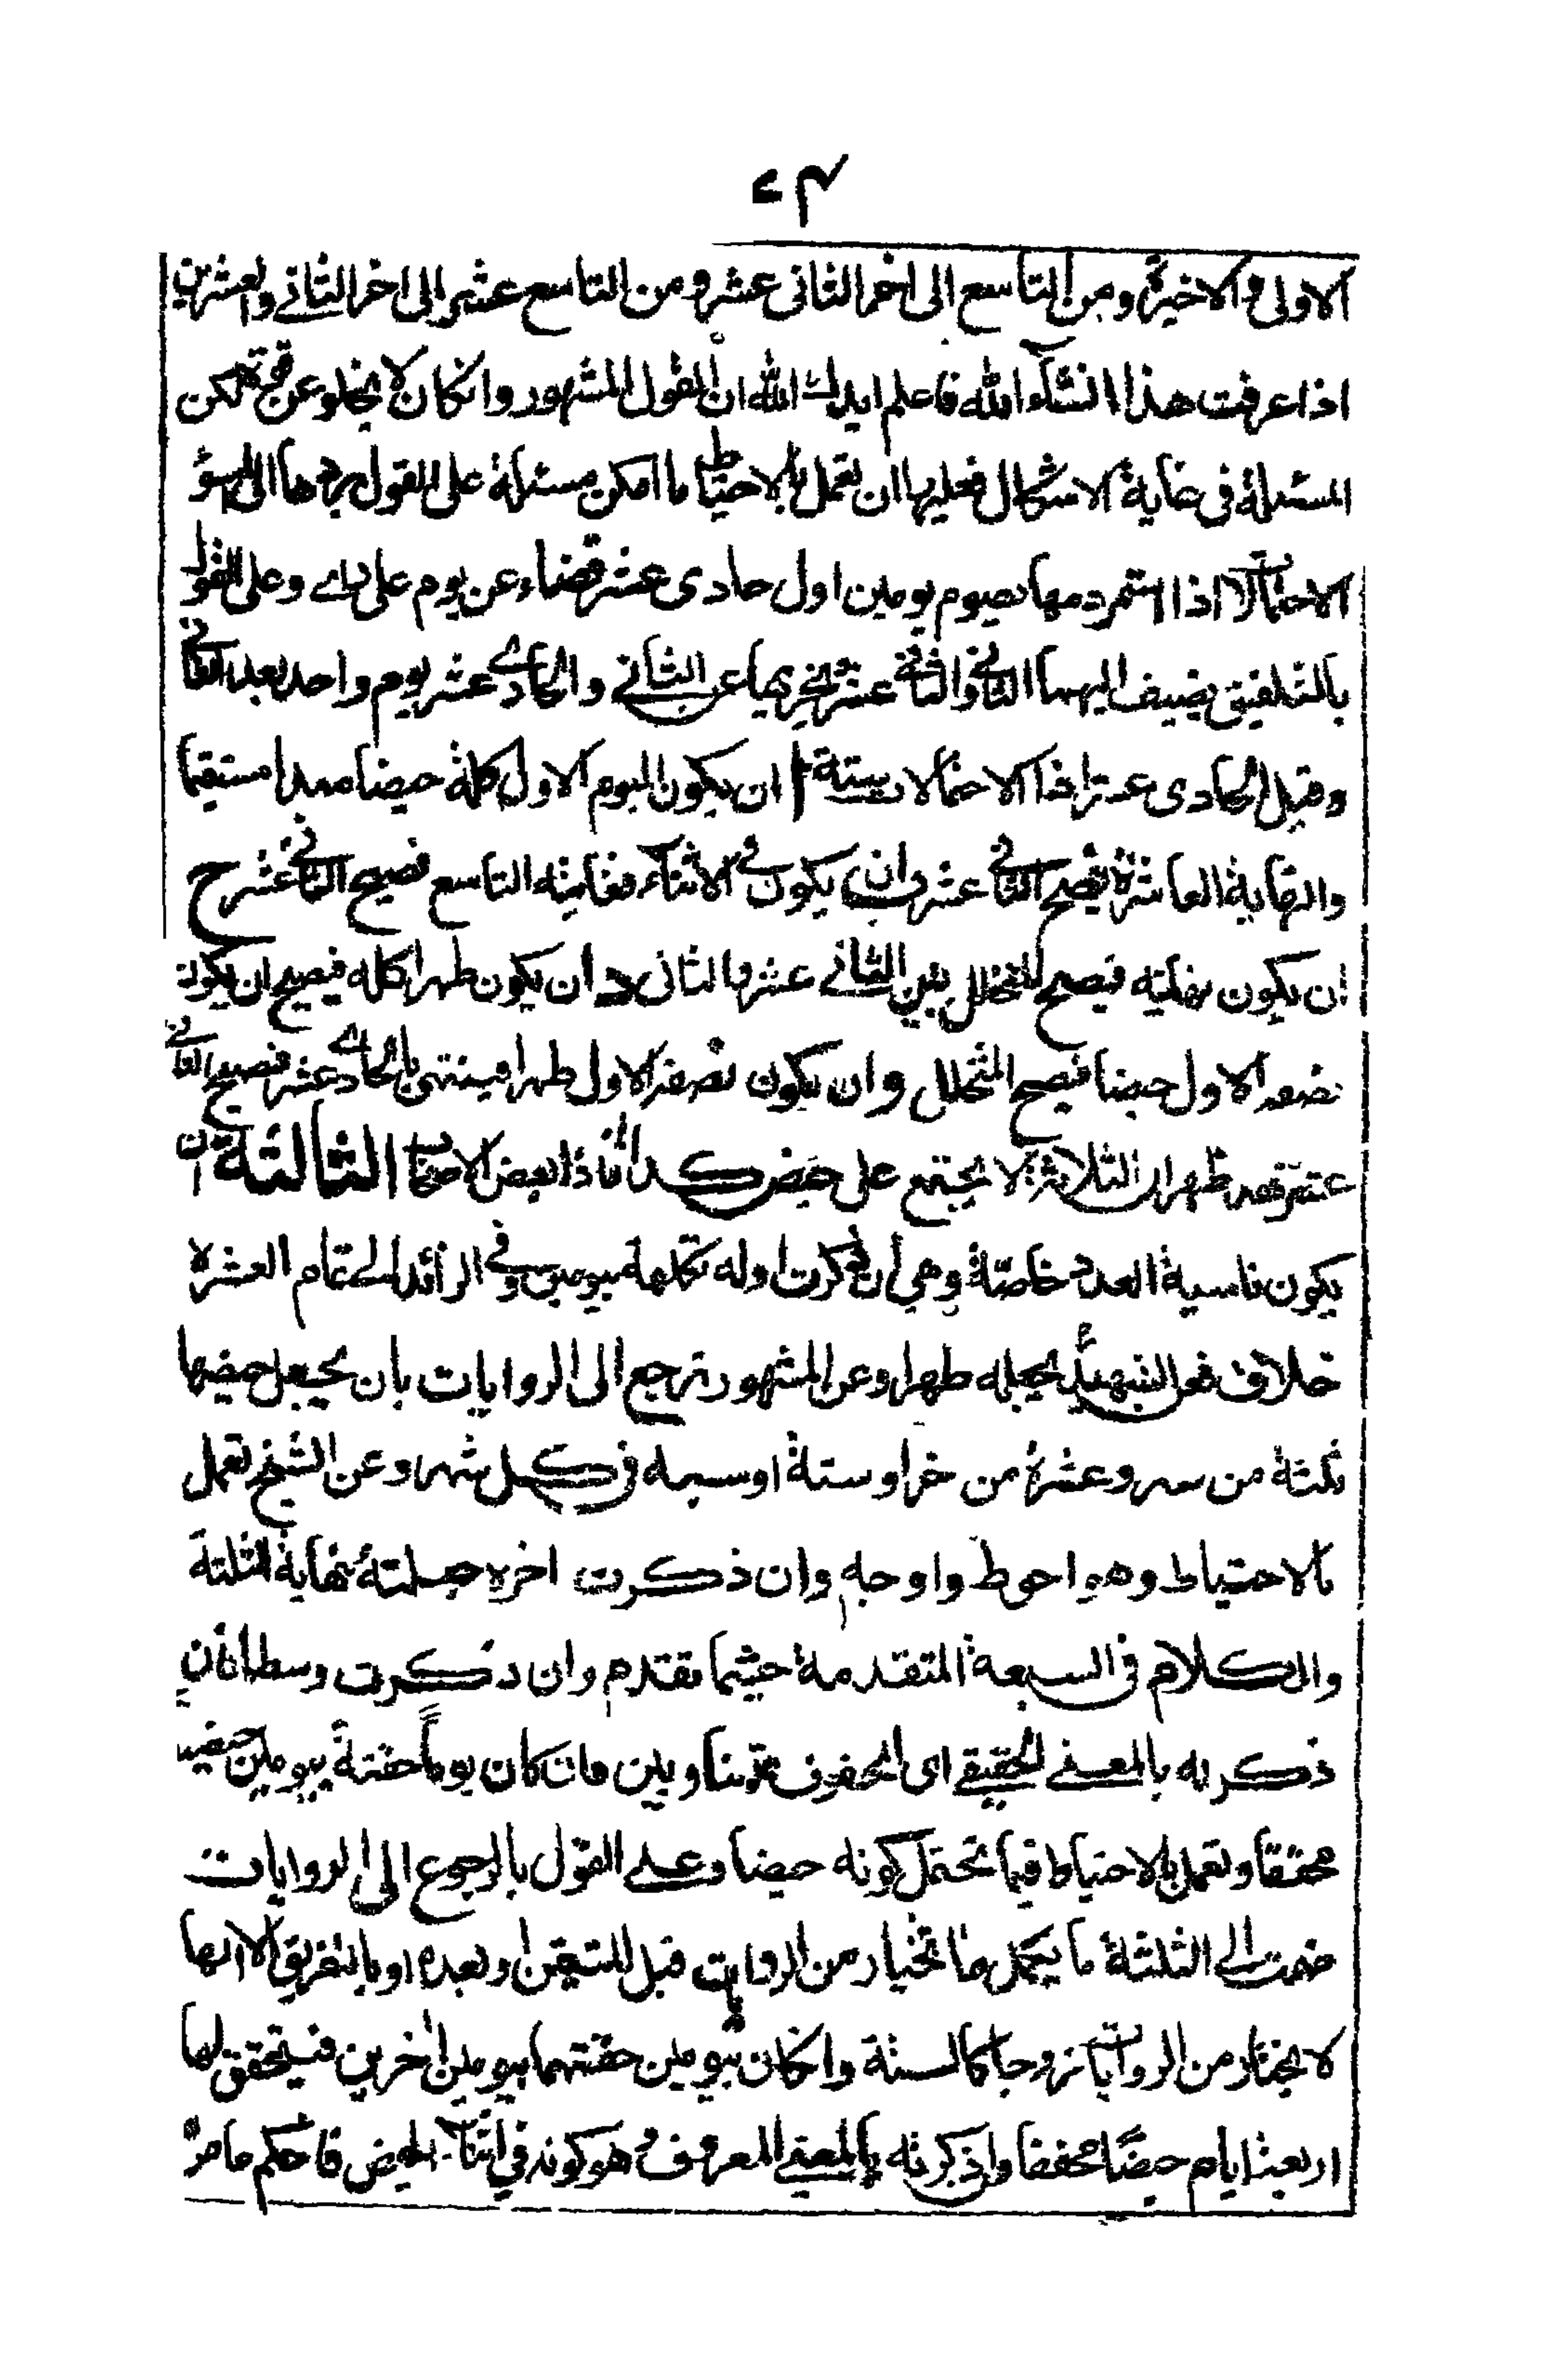 الاولى والاخيرة ومن التاسع الى اخر الثانى عشر ومن التاسع عشر الى اخر الثاني والعشرين
اذا عرفت هذا انشآء الله فاعلم ايدك الله ان القول المشهور وانكان لا يخلو عن قوة لكن
المسئلة فى غاية الاشكال فعليها ان تعمل بالاحتياط ما امكن مسئلة على القول بردها الى اسوء
الاحتمالات اذا استمر دمها تصوم يومين اول حادى عشر قضاء عن يوم على راى وعلى القول
بالتلفيق يضيف اليهما الثاني والثاني عشر يوم واحد بعد الثاني
وقبل الحادى عشر اذا الاحتمالات ستة ا ان يكون اليوم الاول كله حيضا مستقيما
والنهاية العاشرة فيصح الثاني عشر ب ان يكون في الاثنآء فغايته التاسع فيصح الثاني عشر ح
ان يكون نهايته فيصح المتخلل بين الثاني عشر والثانى د ان يكون طهرا كله فيصح ان يكون
نصفه الاول حيضا فيصح المتخلل و ان يكون نصفه الاول طهرا فينتهى بالحادي عشر فيصح الثاني
عشر لا يجتمع على حيض بعض الثالثة ان
يكون ناسية العدد خاصّة وهي ان ذكرت اوله تكمله بيومين وفي الزائد الى تمام العشرة
خلاف فعن الشهيد يجعله طهرا وعن المشهور ترجع الى الروايات بان يجعل حيضها
ثلثة من شهر وعشرة من اخر او ستة او سبعه فى كل شهر وعن الشيخ تعمل
بالاحتياط وهو احوط واوجه وان ذكرت اخره جعلته نهاية الثلثة
والكلام فى السبعة المتقدمة حيثما تقدم وان ذكرت وسطا فان
ذكرته بالمعنى الحقيقي اى المحفوف بمتساويين فان كان يوماً حفته بيومين حيضين
محققا وتعمل بالاحتياط فيما يحتمل كونه حيضا وعلى القول بالرجوع الى الروايات
ضمت الى الثلثة ما يكمل ما تختار من الروايات قبل المتيقن او بعده او بالتفريق الا انها
لا تختار من الروايات زوجا كالستة وانكان يومين حفتهما بيومين اخرين فيتحقق لها
اربعة ايام حيضًا محققا وان ذكرته بالمعنى المعروف وهو كونه في اثنآء الحيض فالحكم ما مر